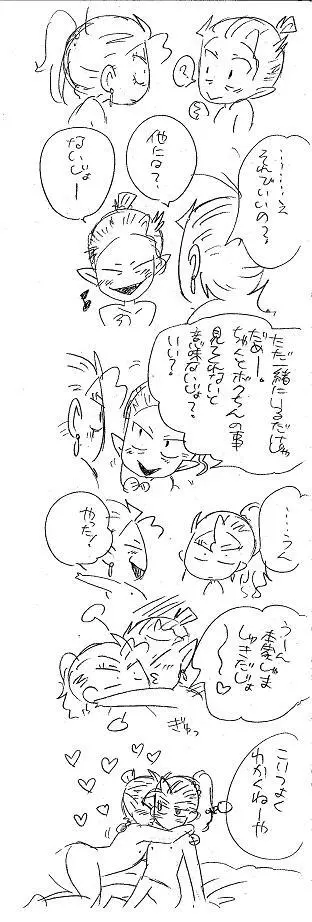 ……え
それでいいの?
他になる?
ないじょー
ただ一緒にいるだけじゃ
だぁー。
ちゃんとボクちんの事
見てくれないと
意味ないじょ?
いい?
……うん
やった!
うーん
本案じゃま
しゅきだじょ
ぎゅっ
こいつよく
わかんねーや